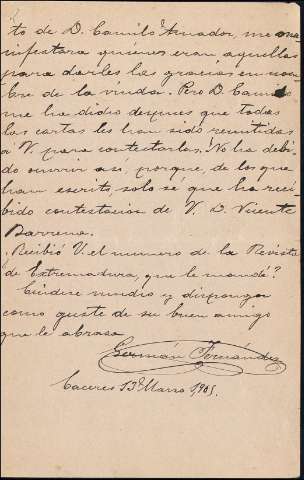 to de D. Camilo Amador, me ma
nifestara quienes eran aquellas
para darles las gracias en nom
bre de la viuda. Pero D. Camilo
me ha dicho despues que todas
las cartas les han sido remitidas
a V. para contestarlas. No ha debi
do ocurrir asi, porque, de los que
han escrito, solo se que ha reci
bido contestación de V. D. Vicente
Barrena.
¿Recibió V. el numero de la Revista
de Extremadura, que le mandé?
Cuidese mucho y disponga
como guste de su buen amigo
que le abraza
Germán Fernández
Caceres 13 Marzo 1905.